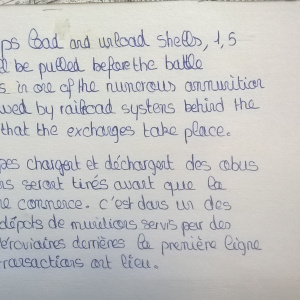 ps load and unload shells, 1,5
d be pulled before the battle
s. in one of the numerous ammunition
wed by railroad systens behind the
that the exchanges take place.
pes chargent et déchargent des obus
ns seront tirés avant que la
ne commence. c'est dans un des
dépots de munitions servis par des
ferroviaires derrières la première ligne
transactions ont lieu.